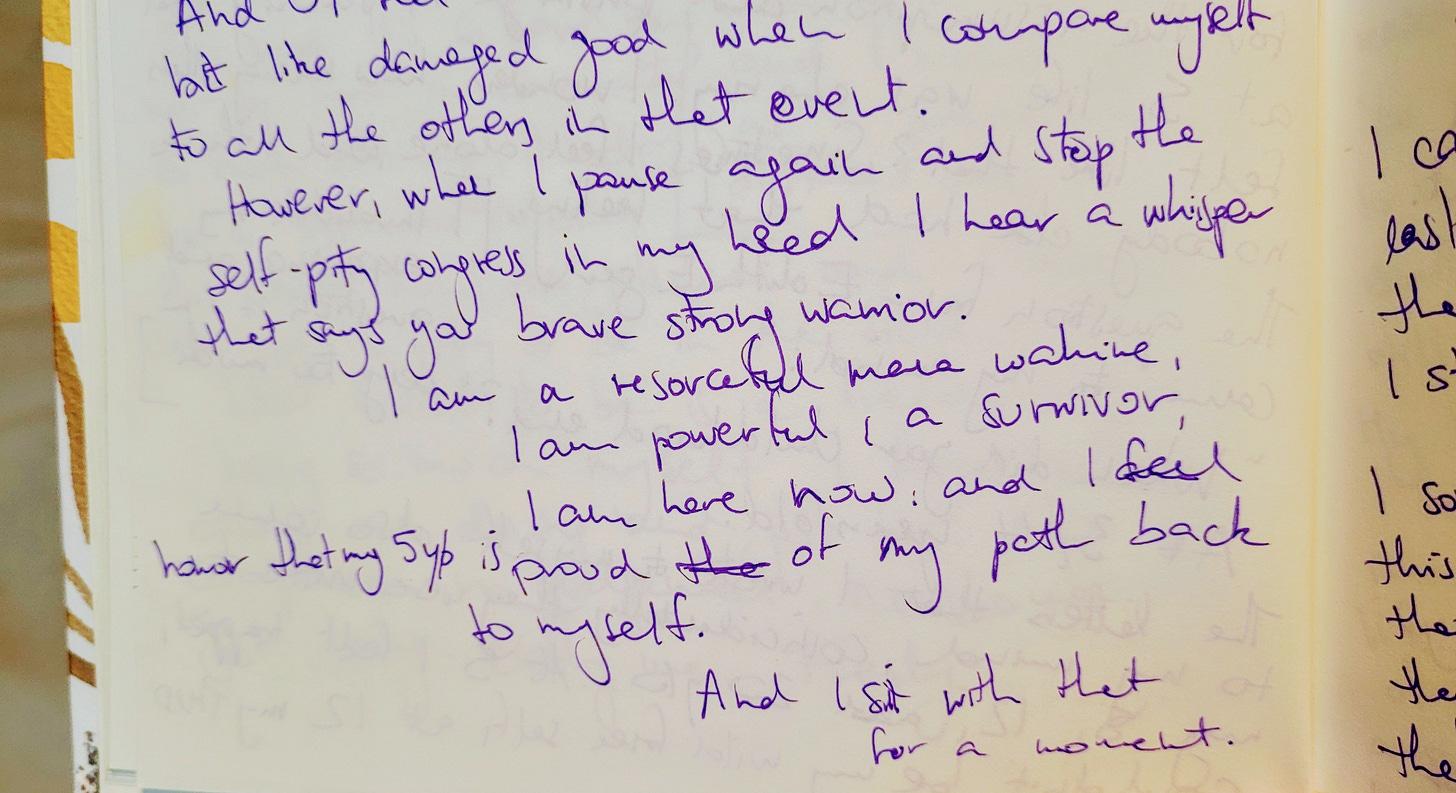 And
but like damaged good when I compare myself
to all the others in that event.
However, when I pause again and stop the
self-pity congress in my head I hear a whisper
that says you brave strong warrior.
I am a resorceful mana wahine,
I am powerful, a survivor,
I am here now. and I feel
honor that my 5y/o is proud the of my path back
to myself.
And I sit with that
for a moment.
I
last
the
I
I
this
the
the
the